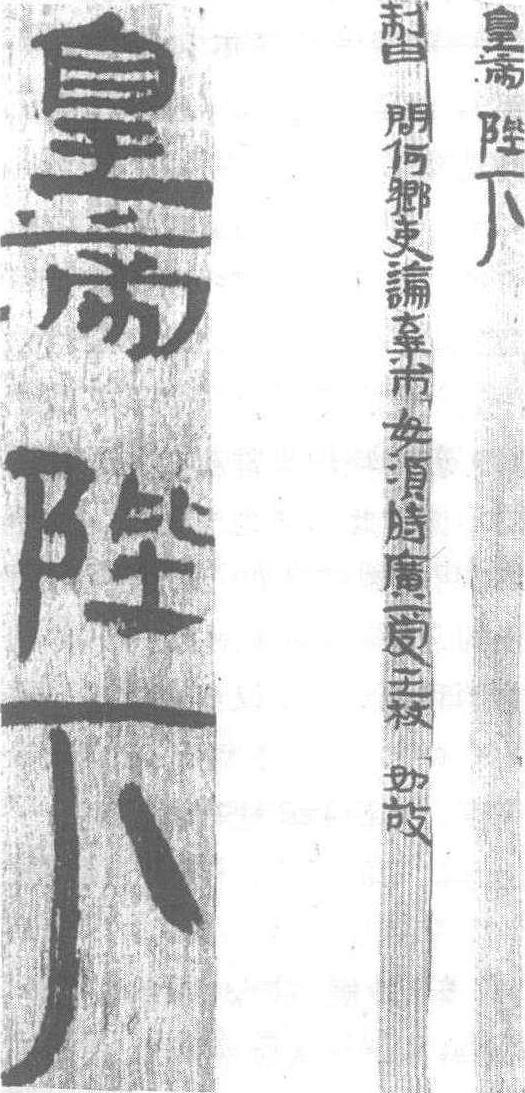 皇帝陛下
制曰 問何鄉吏論棄市毋須時廣受王杖 如故
皇帝陛下